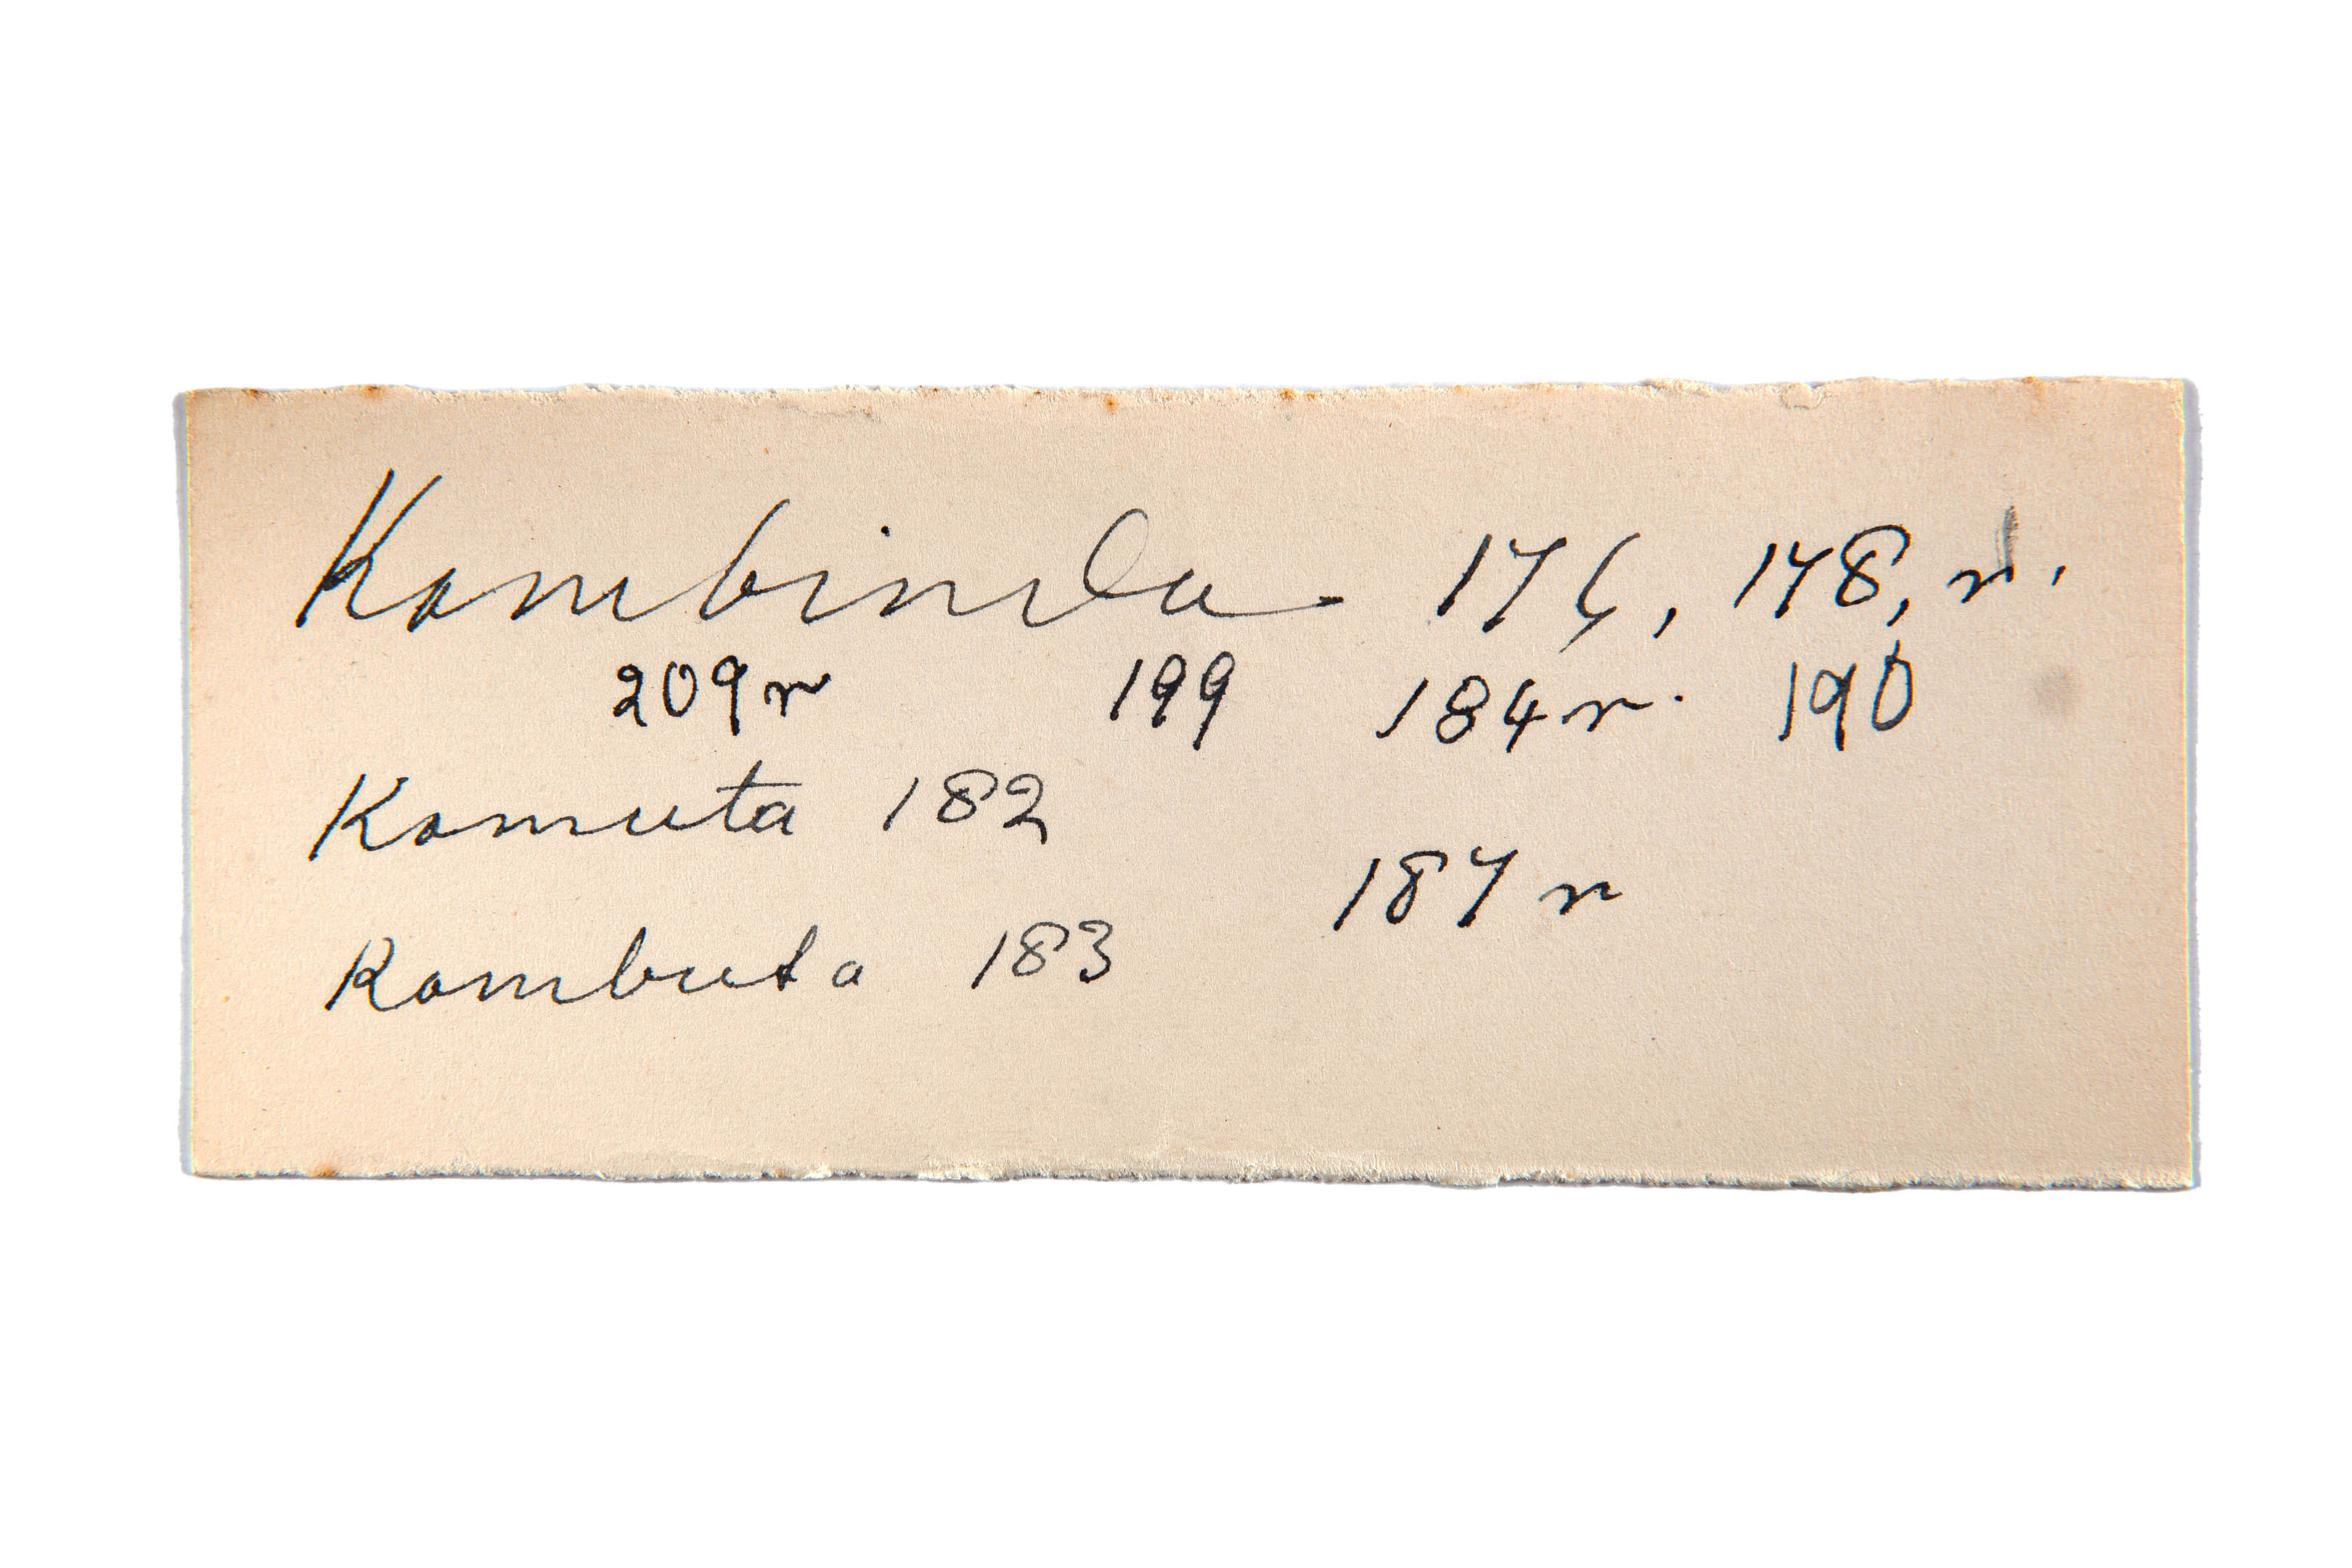 Kambinda 176, 178, r.
209r 199 184r. 190
Kamuta 182
187 r
Kambuta 183